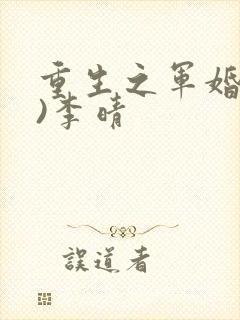 重生之军婚
)李晴
誤道者